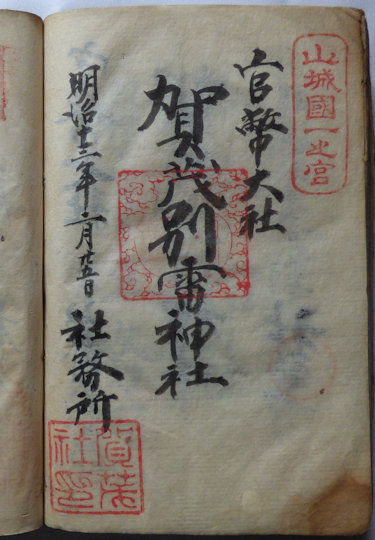 山城國一之宮
官幣大社
賀茂別雷神社
明治十三年二月廿五日
社務所
賀茂社印